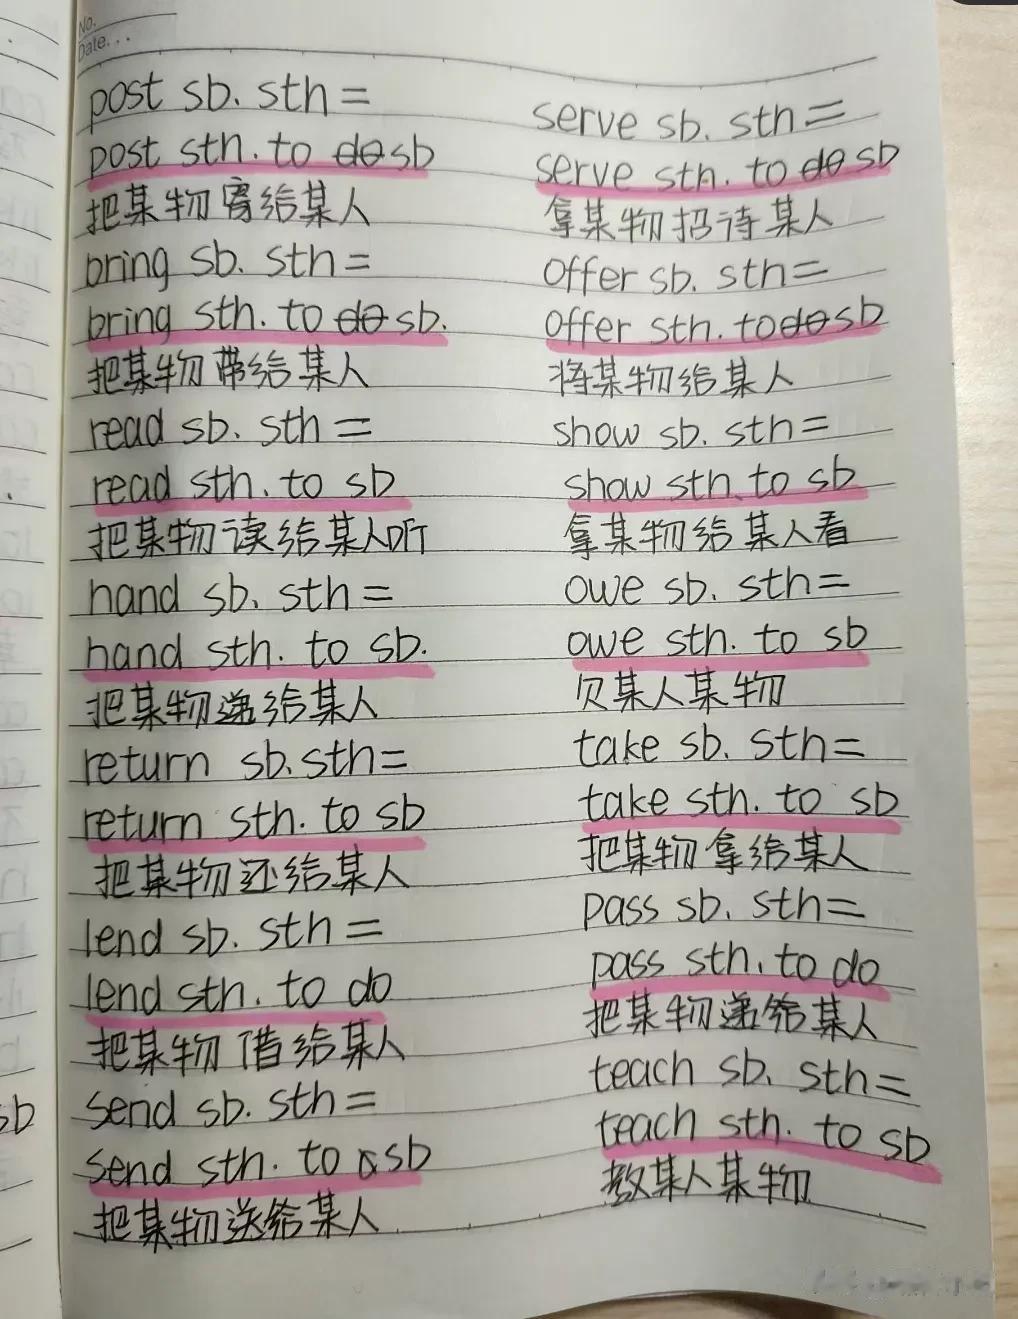 No.
Date. . .
post sb. sth =
post sth. to do sb
把某物寄给某人
bring sb. sth =
bring sth. to do sb.
把某物带给某人
read sb. sth =
read sth. to sb
把某物读给某人听
hand sb. sth =
hand sth. to sb.
把某物递给某人
return sb. sth =
return sth. to sb
把某物还给某人
lend sb. sth =
lend sth. to do
把某物借给某人
send sb. sth =
send sth. to sb
把某物送给某人
serve sb. sth =
serve sth. to do sb
拿某物招待某人
offer sb. sth =
offer sth. to do sb
将某物给某人
show sb. sth =
show sth. to sb
拿某物给某人看
owe sb. sth =
owe sth. to sb
欠某人某物
take sb. sth =
take sth. to sb
把某物拿给某人
pass sb. sth =
pass sth. to do
把某物递给某人
teach sb. sth =
teach sth. to sb
教某人某物
sb